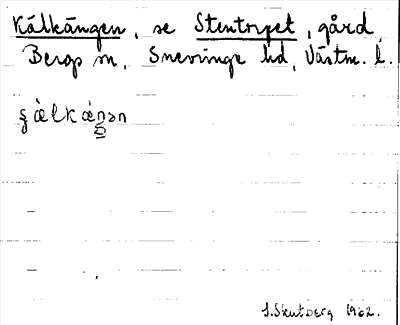 Kälkängen, se Stentorpet, gård,
Bergs sn, Snevringe hd, Västm. l.
S. Skutberg 1962.